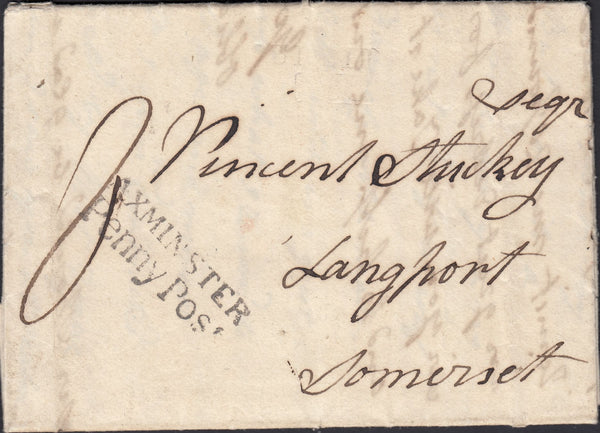 Vincent Stuckey
Esqr
Langport
Somerset
AXMINSTER
Penny Post